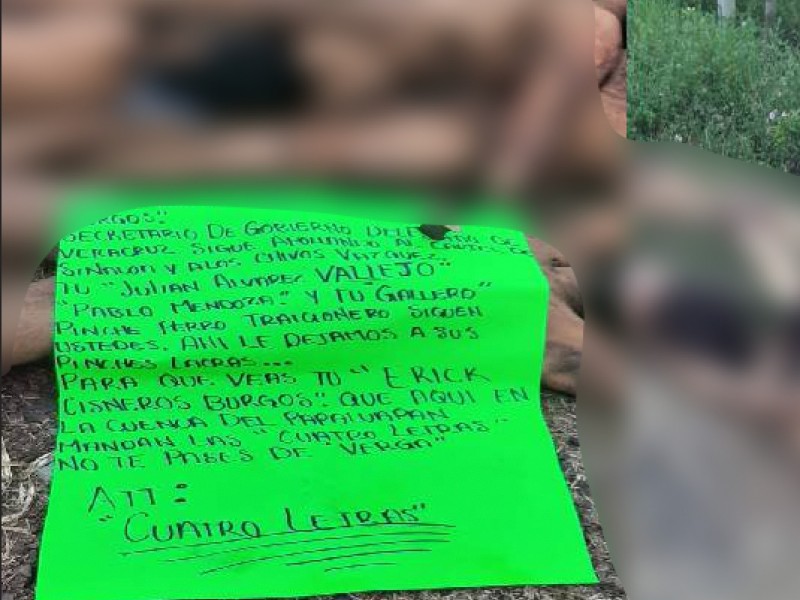 URGOS"
SECRETARIO DE GOBIERNO DEL DE
VERACRUZ SIGUE APOLLANDO AL DE
SINALOA Y ALOS CHIVOS VAZQUEZ,
TU "JULIAN ALVAREZ VALLEJO"
"PABLO MENDOZA" Y TU "GALLERO"
PINCHE PERRO TRAICIONERO SIGUEN
USTEDES. AHI LE DEJAMOS A SUS
PINCHES LACRAS...
PARA QUE VEAS TU "ERICK
CISNEROS BURGOS" QUE AQUI EN
LA CUENCA DEL PAPALUAPAN
MANDAN LAS "CUATRO LETRAS"
NO TE PASES DE "VERGA"
ATT:
"CUATRO LETRAS"